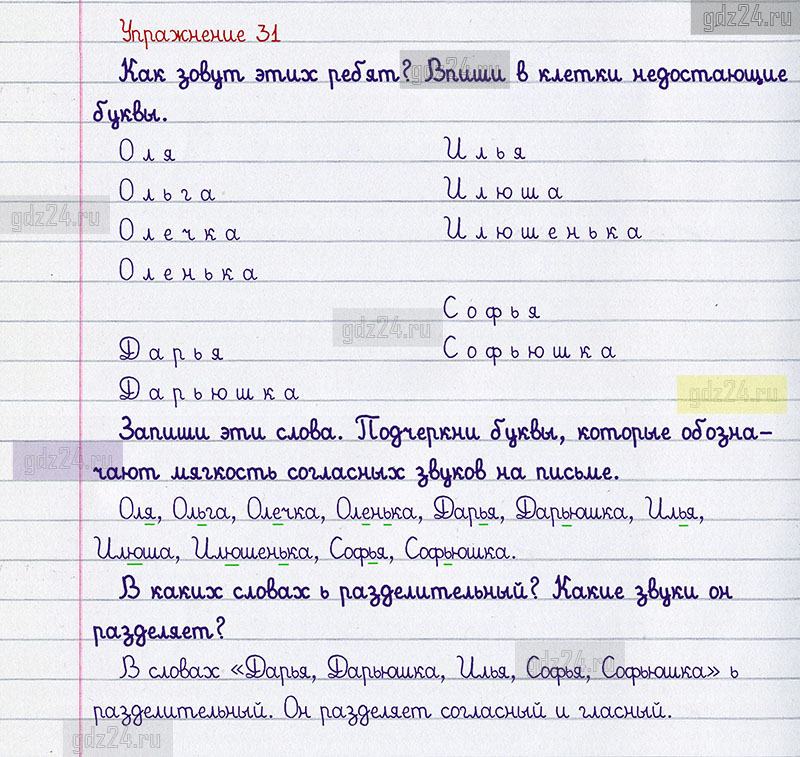 gdz24.ru
Упражнение 31
Как зовут этих ребят? Впиши в клетки недостающие
gdz24.ru
буквы.
Оля Илья
Ольга Илюша
gdz24.ru
Олечка Илюшенька
Оленька
Софья
gdz24.ru
Дарья Софьюшка
Дарьюшка
gdz24.ru
Запиши эти слова. Подчеркни буквы, которые обозна-
gdz24.ru
чают мягкость согласных звуков на письме.
Оля, Ольга, Олечка, Оленька, Дарья, Дарьюшка, Илья,
Илюша, Илюшенька, Софья, Софьюшка.
В каких словах ь разделительный? Какие звуки он
разделяет?
В словах «Дарья, Дарьюшка, Илья, Софья, Софьюшка» ь
gdz24.ru
разделительный. Он разделяет согласный и гласный.
gdz24.ru